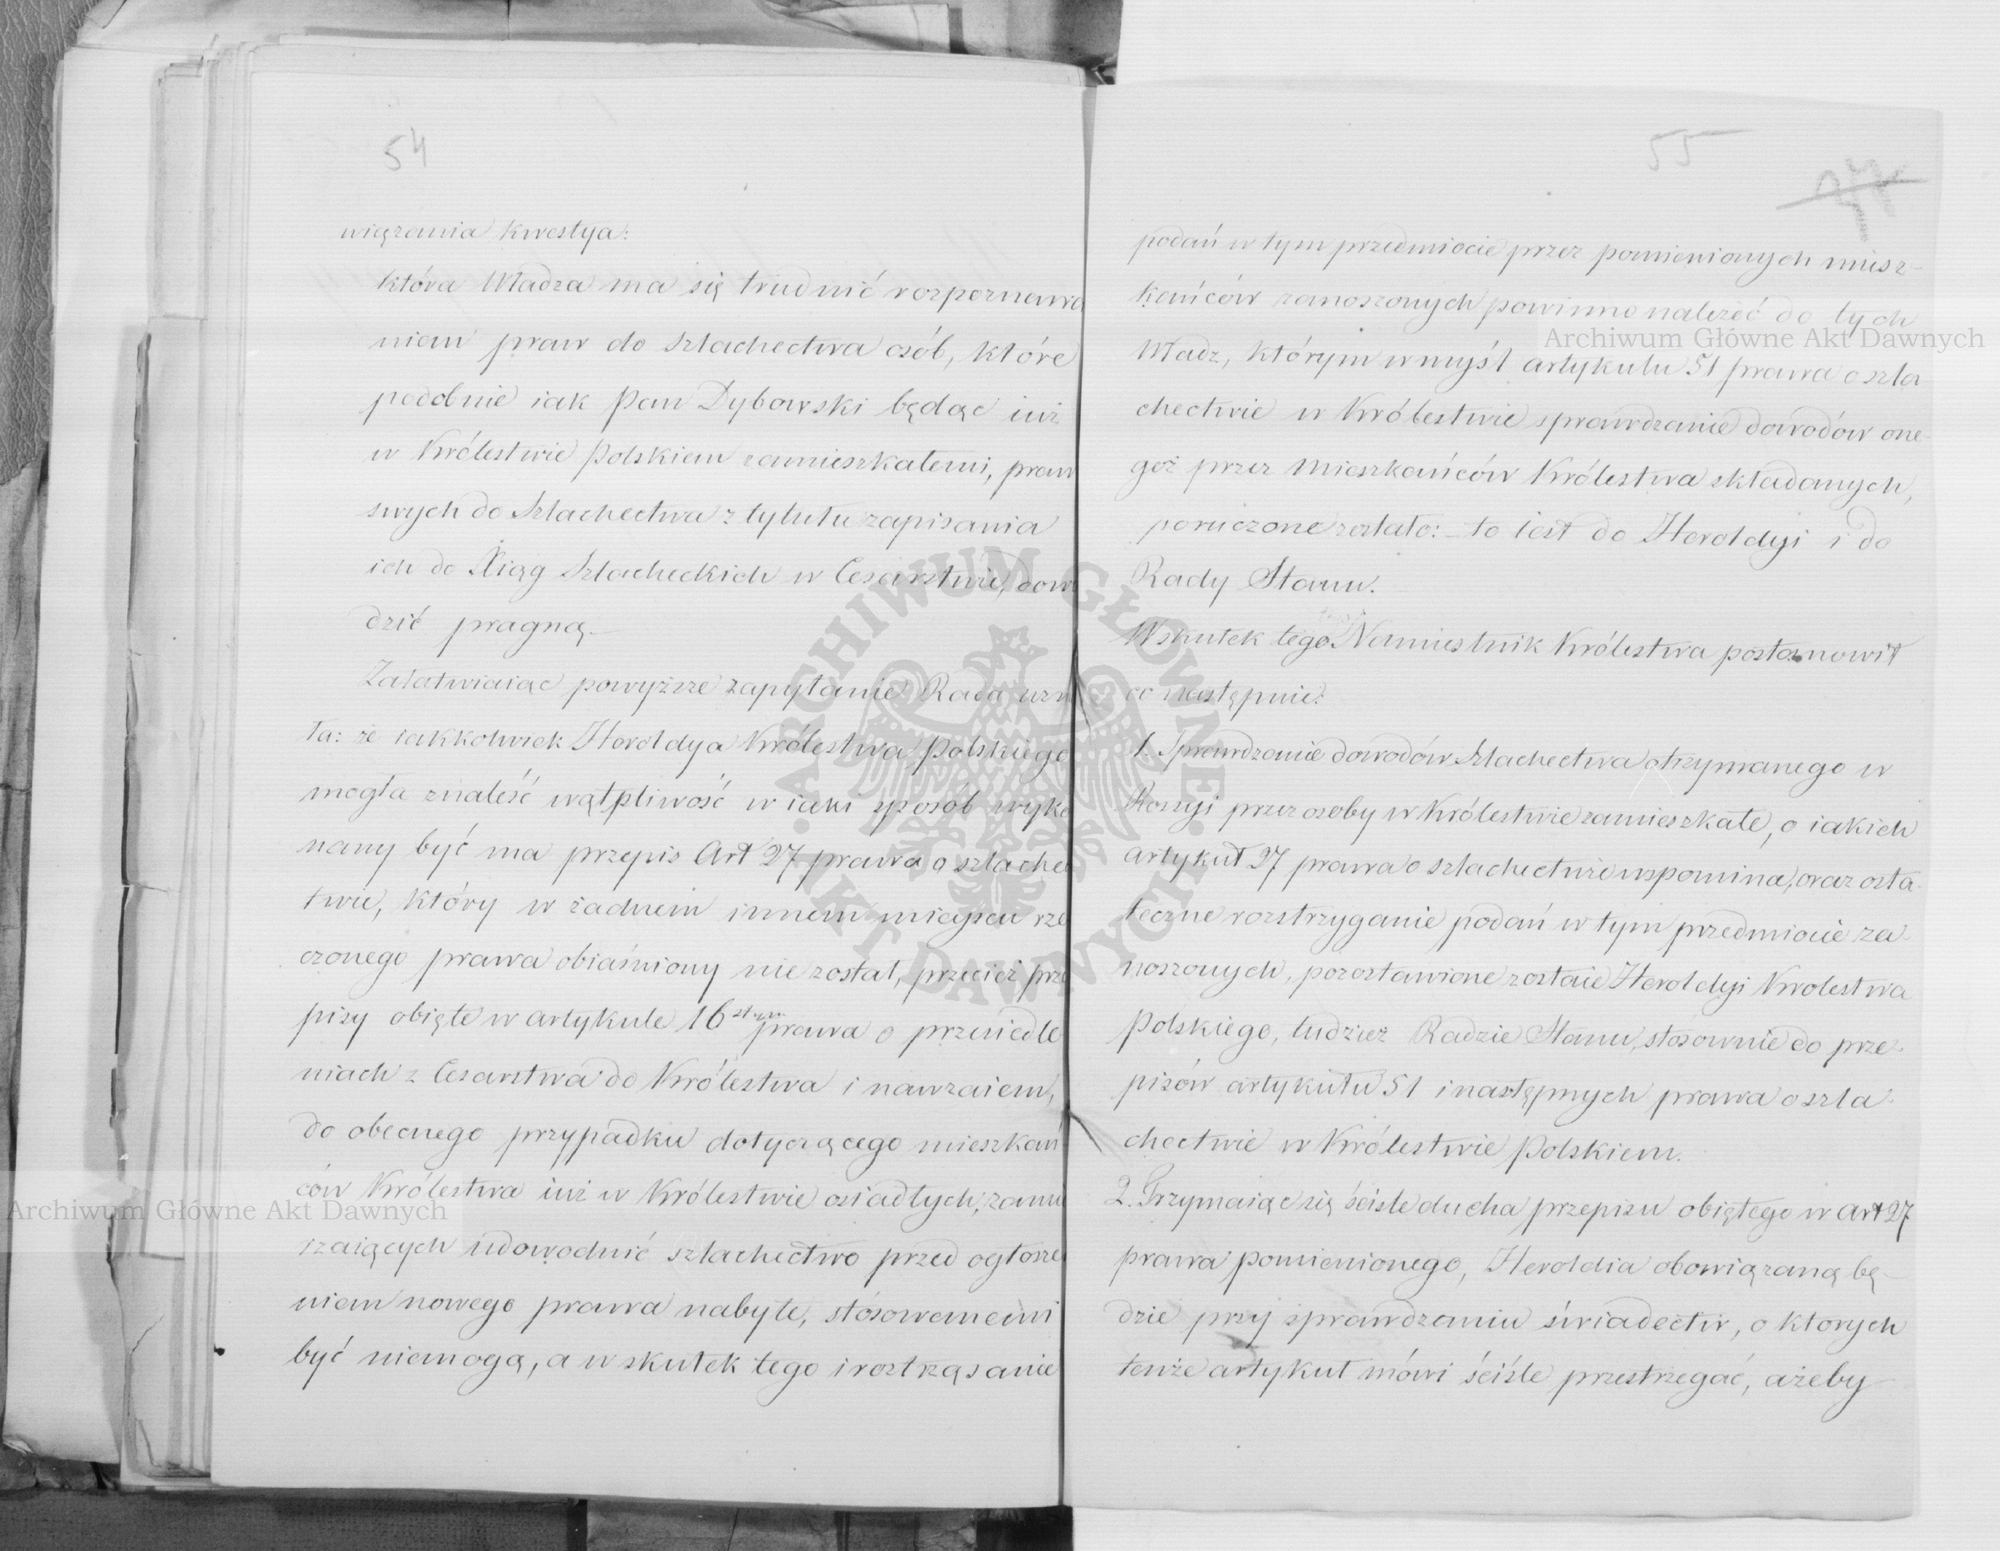 54
wiązania kwestya:
która Władza ma się trudnić rozpoznawa
niem praw do szlachectwa osób, które
podobnie iak Pan Dybowski będąc iuż
w Królestwie Polskiem zamieszkałemi, praw
swych do Szlachectwa z tytułu zapisania
ich do Xiąg Szlacheckich w Cesarstwie, dowo
dzić pragną.
Załatwiaiąc powyższe zapytanie Rada uzna
ła: że iakkolwiek Heroldya Królestwa Polskiego
mogła znaleść wątpliwość w iaki sposób wyko
nany być ma przepis Art 27 prawa o szlachec
twie, który w żadnem innem miejscu rze
czonego prawa obiaśniony nie został, przecież prze
pisy obięte w artykule 16stym prawa o przesiedle
niach z Cesarstwa do Królestwa i nawzaiem,
do obecnego przypadku dotyczącego mieszkań
ców Królestwa iuż w Królestwie osiadłych, zamie
rzaiących udowodnić szlachectwo przed ogłosze
niem nowego prawa nabyte, stósowanemi
być niemogą, a w skutek tego i roztrząsanie
55
podań w tym przedmiocie przez pomienionych miesz-
kańców zanoszonych powinno należeć do tych
Władz, którym w myśl artykułu 51 prawa o szla
chectwie w Królestwie sprawdzanie dowodów one-
goż przez Mieszkańców Królestwa składanych,
poruczone zostało: to iest do Heroldyi i do
Rady Stanu.
Wskutek tego Namiestnik Królestwa postanowił
co następuie:
1. Sprawdzanie dowodów Szlachectwa otrzymanego w
Rossyi przez osoby w Królestwie zamieszkałe, o iakich
artykuł 27 prawa o szlachectwie wspomina, oraz osta-
teczne rozstrzyganie podań w tym przedmiocie za-
noszonych, pozostawione zostaie Heroldyi Krolestwa
Polskiego, tudzież Radzie Stanu, stósownie do prze-
pisów artykułu 51 i następnych prawa o szla-
chectwie w Królestwie Polskiem.
2. Trzymaiąc się ściśle ducha przepisu obiętego w Art 27
prawa pomienionego, Heroldia obowiązaną bę-
dzie przy sprawdzaniu świadectw, o ktorych
tenże artykuł mówi ściśle przestrzegać, ażeby
Archiwum Główne Akt Dawnych
Archiwum Główne Akt Dawnych
ARCHIWUM GŁÓWNE AKT DAWNYCH